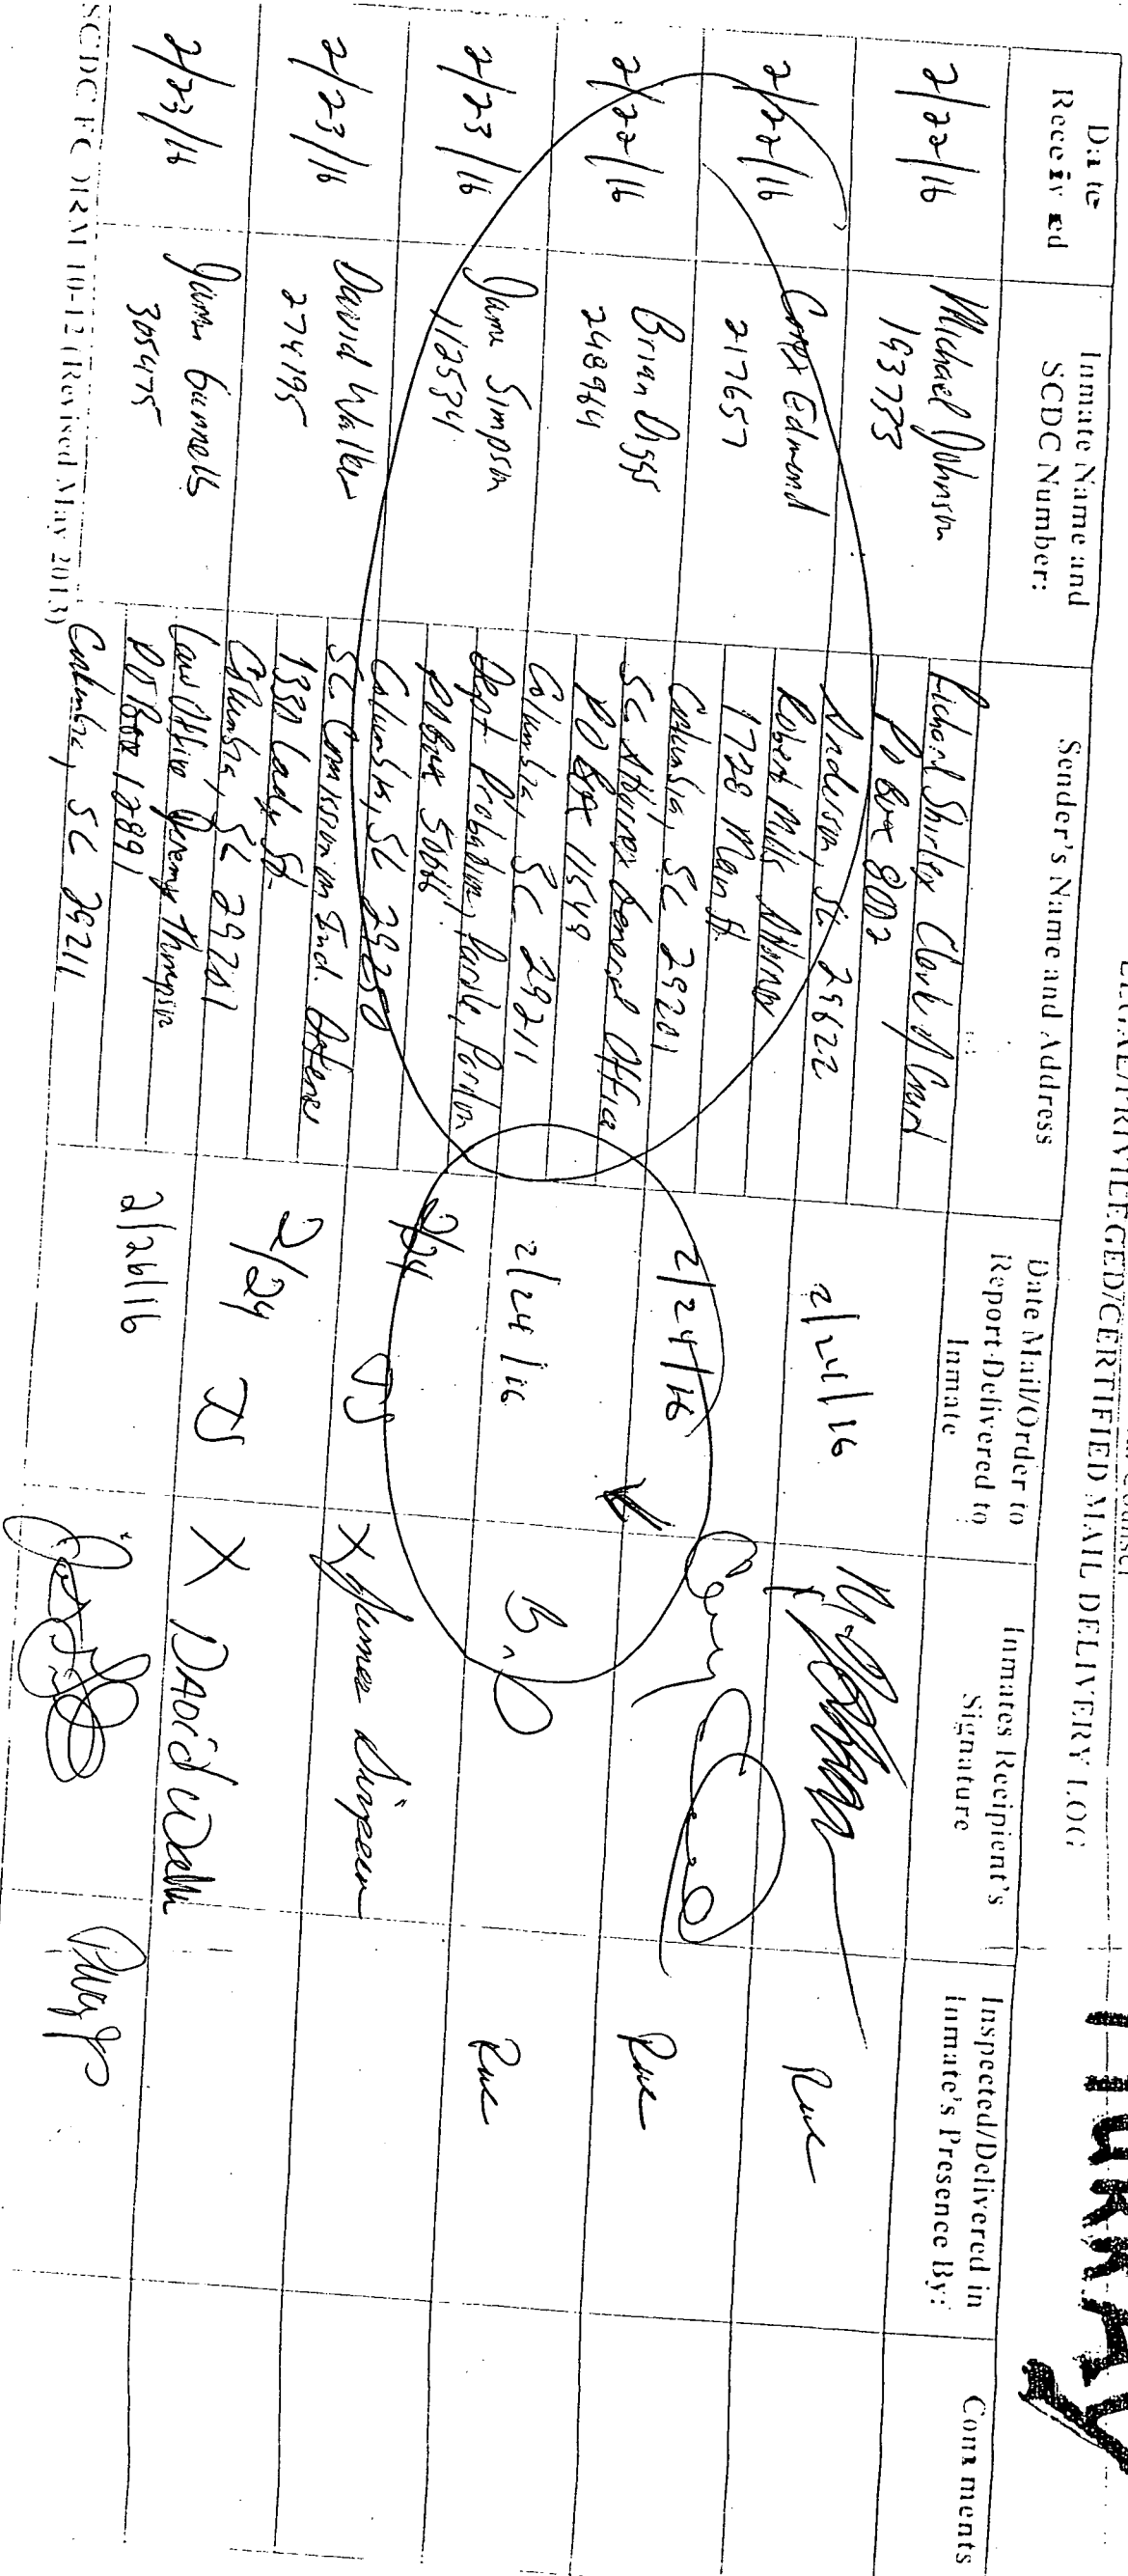 LEGAL/PRIVILEGED/CERTIFIED MAIL DELIVERY LOG
Date Received
Inmate Name and SCDC Number:
Sender's Name and Address
Date Mail/Order to Report Delivered to Inmate
Inmates Recipient's Signature
Inspected/Delivered in Inmate's Presence By:
Comments
2/22/16
Michael Johnson
193733
Richard Shirley Clerk of Court
PO Box 8002
Anderson, SC 29622
2/24/16
Rue
2/22/16
Corey Edmond
217657
Robert Mills Attorney
1728 Main St.
Columbia, SC 29201
2/24/16
Rue
2/22/16
Brian Diggs
248964
SC Attorney General Office
PO Box 11549
Columbia, SC 29211
2/24/16
B. D
Rue
2/23/16
Jame Simpson
112534
Dept Probation, Parole, Pardon
PO Box 50666
Columbia, SC 29250
2/24 JS
X James Simpson
2/23/16
David Walker
274195
SC Comission on Ind. Defense
1330 Lady St.
Columbia, SC 29201
2/24 JS
X DAvid Walker
2/23/16
Gunnells
305475
Law Office Jeremy Thompson
PO Box 12891
Columbia, SC 29211
2/26/16
SCDC FORM 10-12 (Revised May 2013)